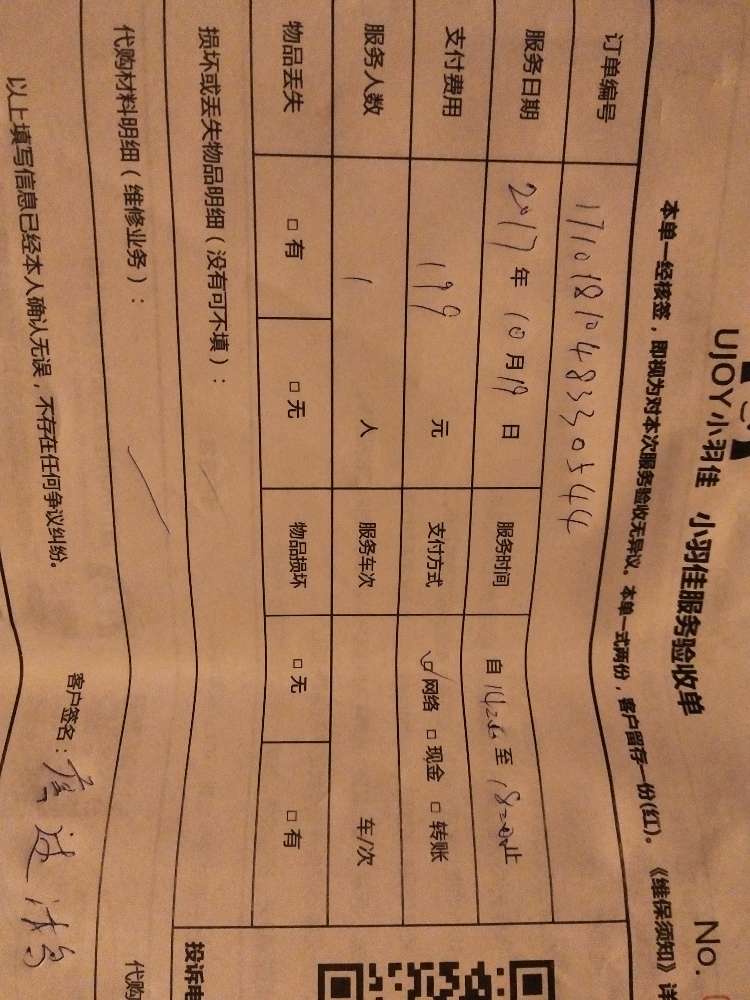 UJOY小羽佳 小羽佳服务验收单 No.
本单一经核签,即视为对本次服务验收无异议。本单一式两份,客户留存一份(红)。《维保须知》详
订单编号 171018104833305444
服务日期 2017年10月19日 服务时间 自 至 止
支付费用 199 元 支付方式 ☑网络 □现金 □转账
服务人数 1 人 服务车次 车/次
物品丢失 □有 □无 物品损坏 □无 □有
损坏或丢失物品明细(没有可不填):
代购材料明细(维修业务): 代购
以上填写信息已经本人确认无误,不存在任何争议纠纷。 客户签名:
投诉电